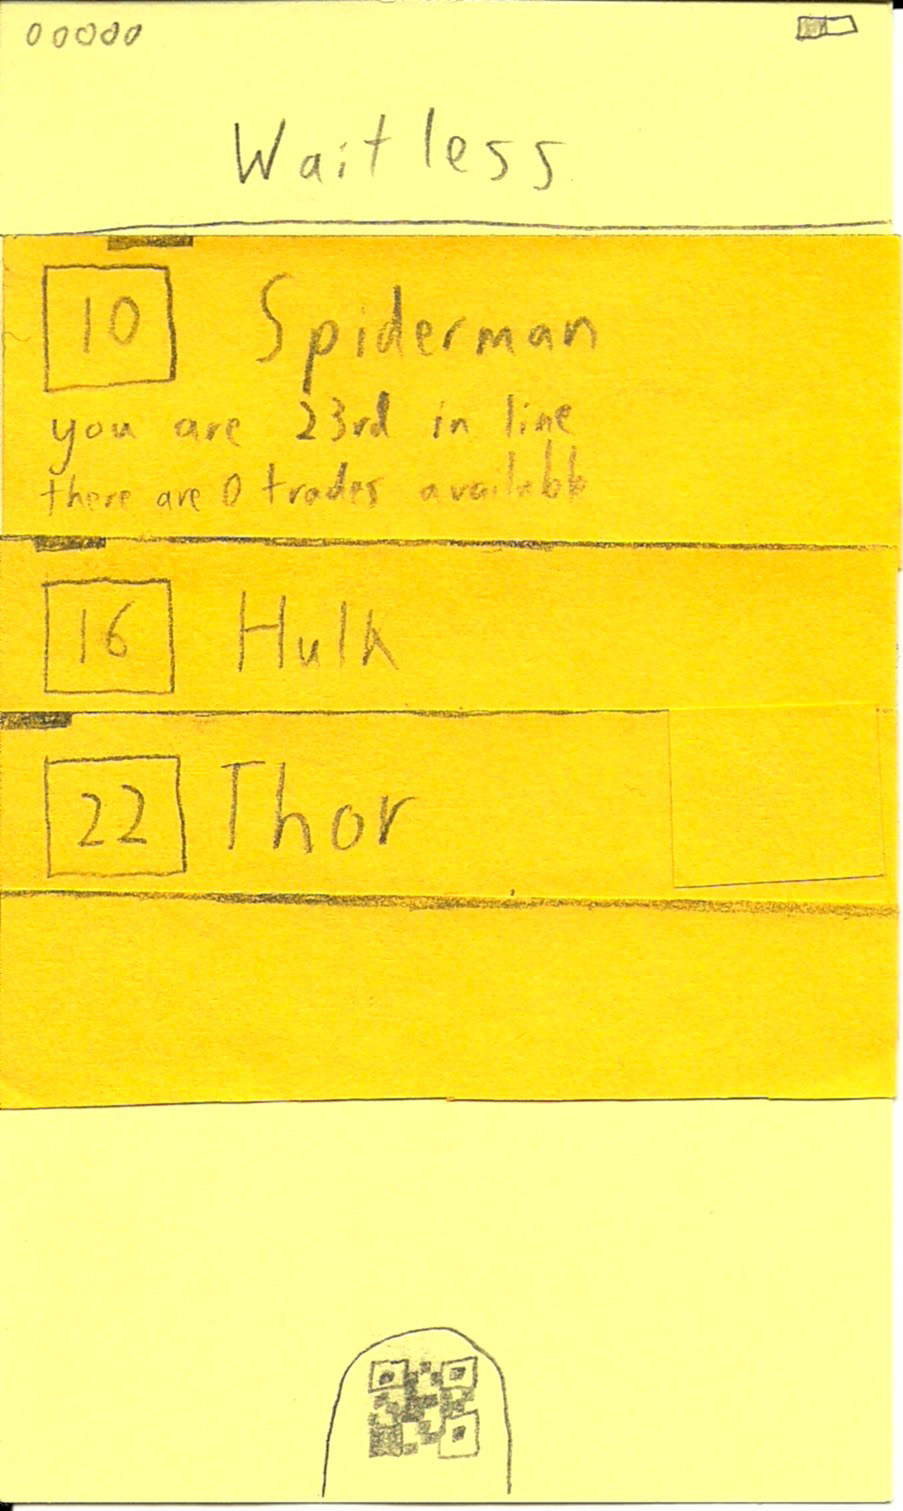 Waitless
10 Spiderman
you are 23rd in line
there are 0 trades available
16 Hulk
22 Thor